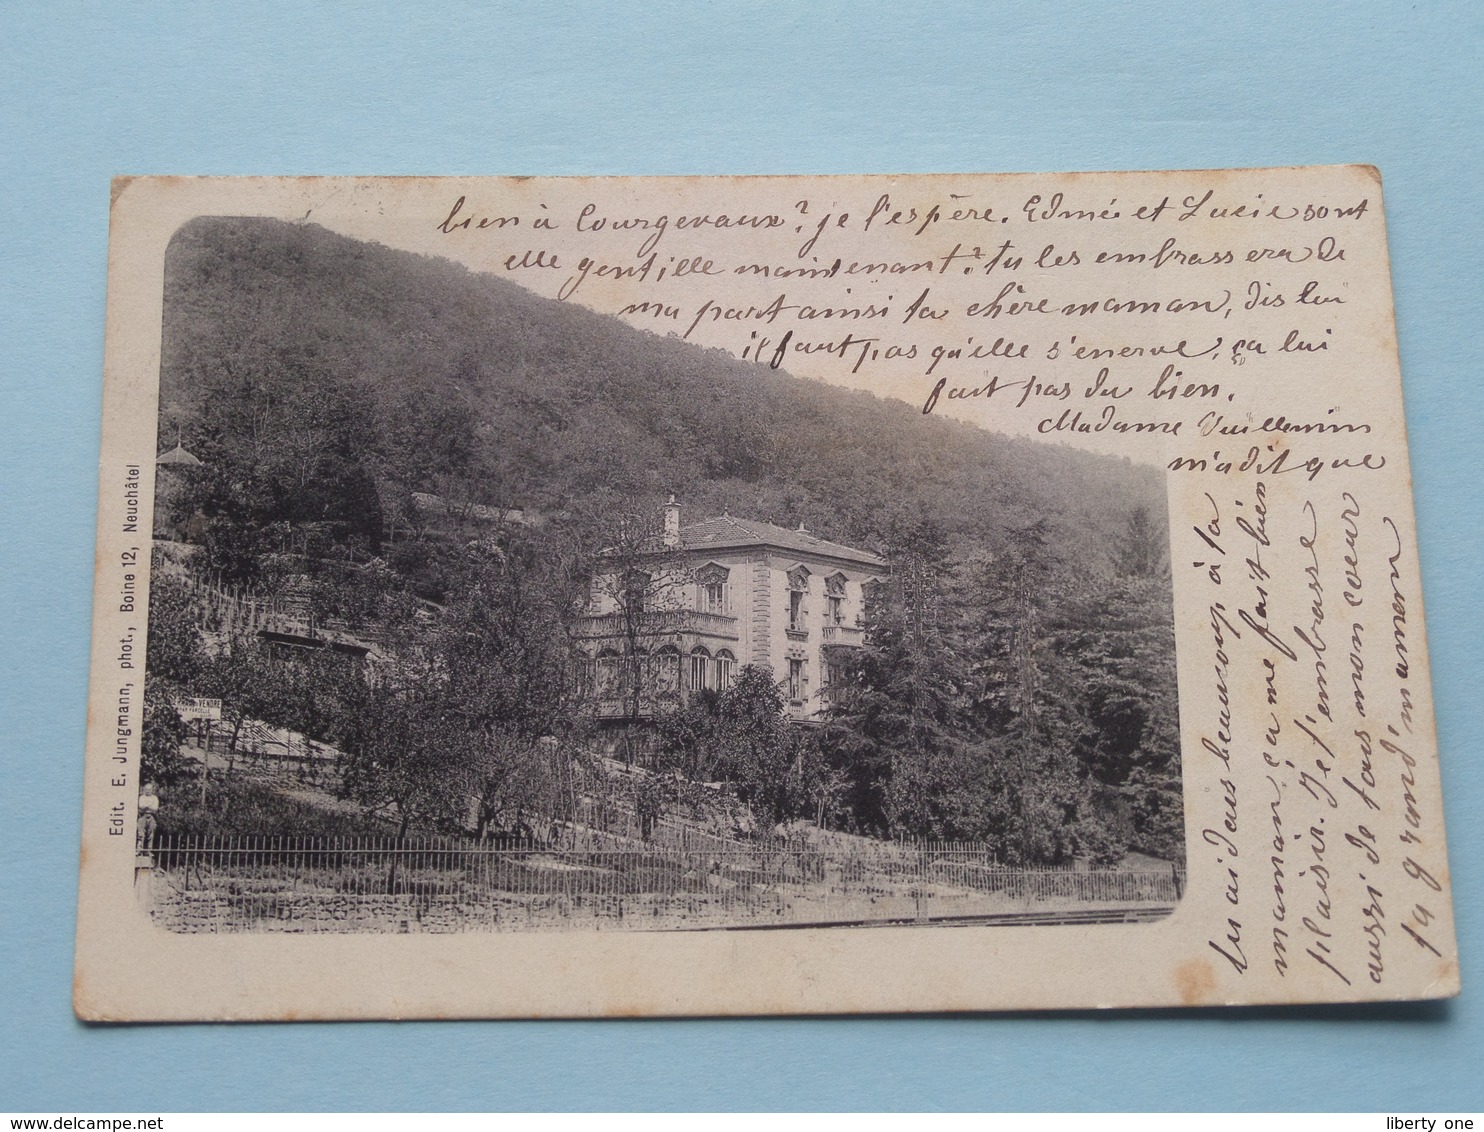 bien à Courgevaux? je l'espère. Edmée et Lucie sont
elle gentille maintenant? tu les embrassera de
ma part ainsi ta chère maman, dis lui
il faut pas qu'elle s'enerve, ça lui
fait pas du bien.
Madame Vuillemin
m'a dit que
tu aidais beaucoup à ta
maman, ça me fait bien
plaisir. Je t'embrasse
aussi de tous mon coeur
ta grand'maman
Edit. E. Jungmann, phot., Boine 12, Neuchâtel
A VENDRE
PAR PARCELLE
delcampe.net
liberty one